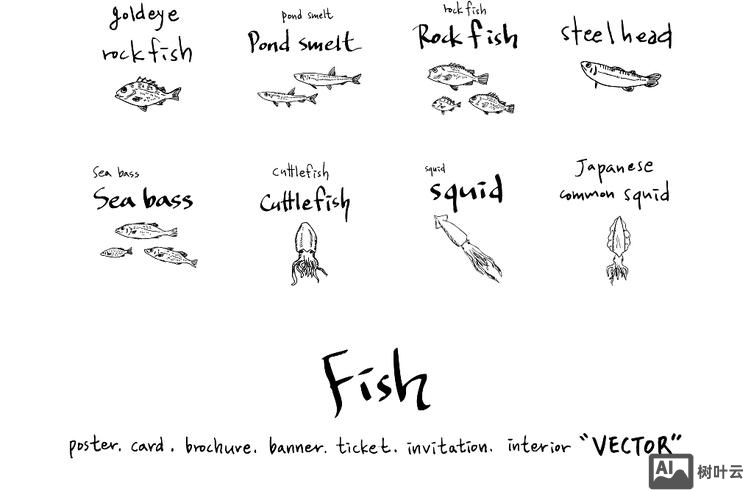 goldeye
rockfish
pond smelt
Pond smelt
rockfish
Rockfish
steelhead
Sea bass
Sea bass
cuttlefish
cuttlefish
squid
squid
Japanese
common squid
Fish
poster. card. brochure. banner. ticket. invitation. interior "VECTOR"
AI 树叶云